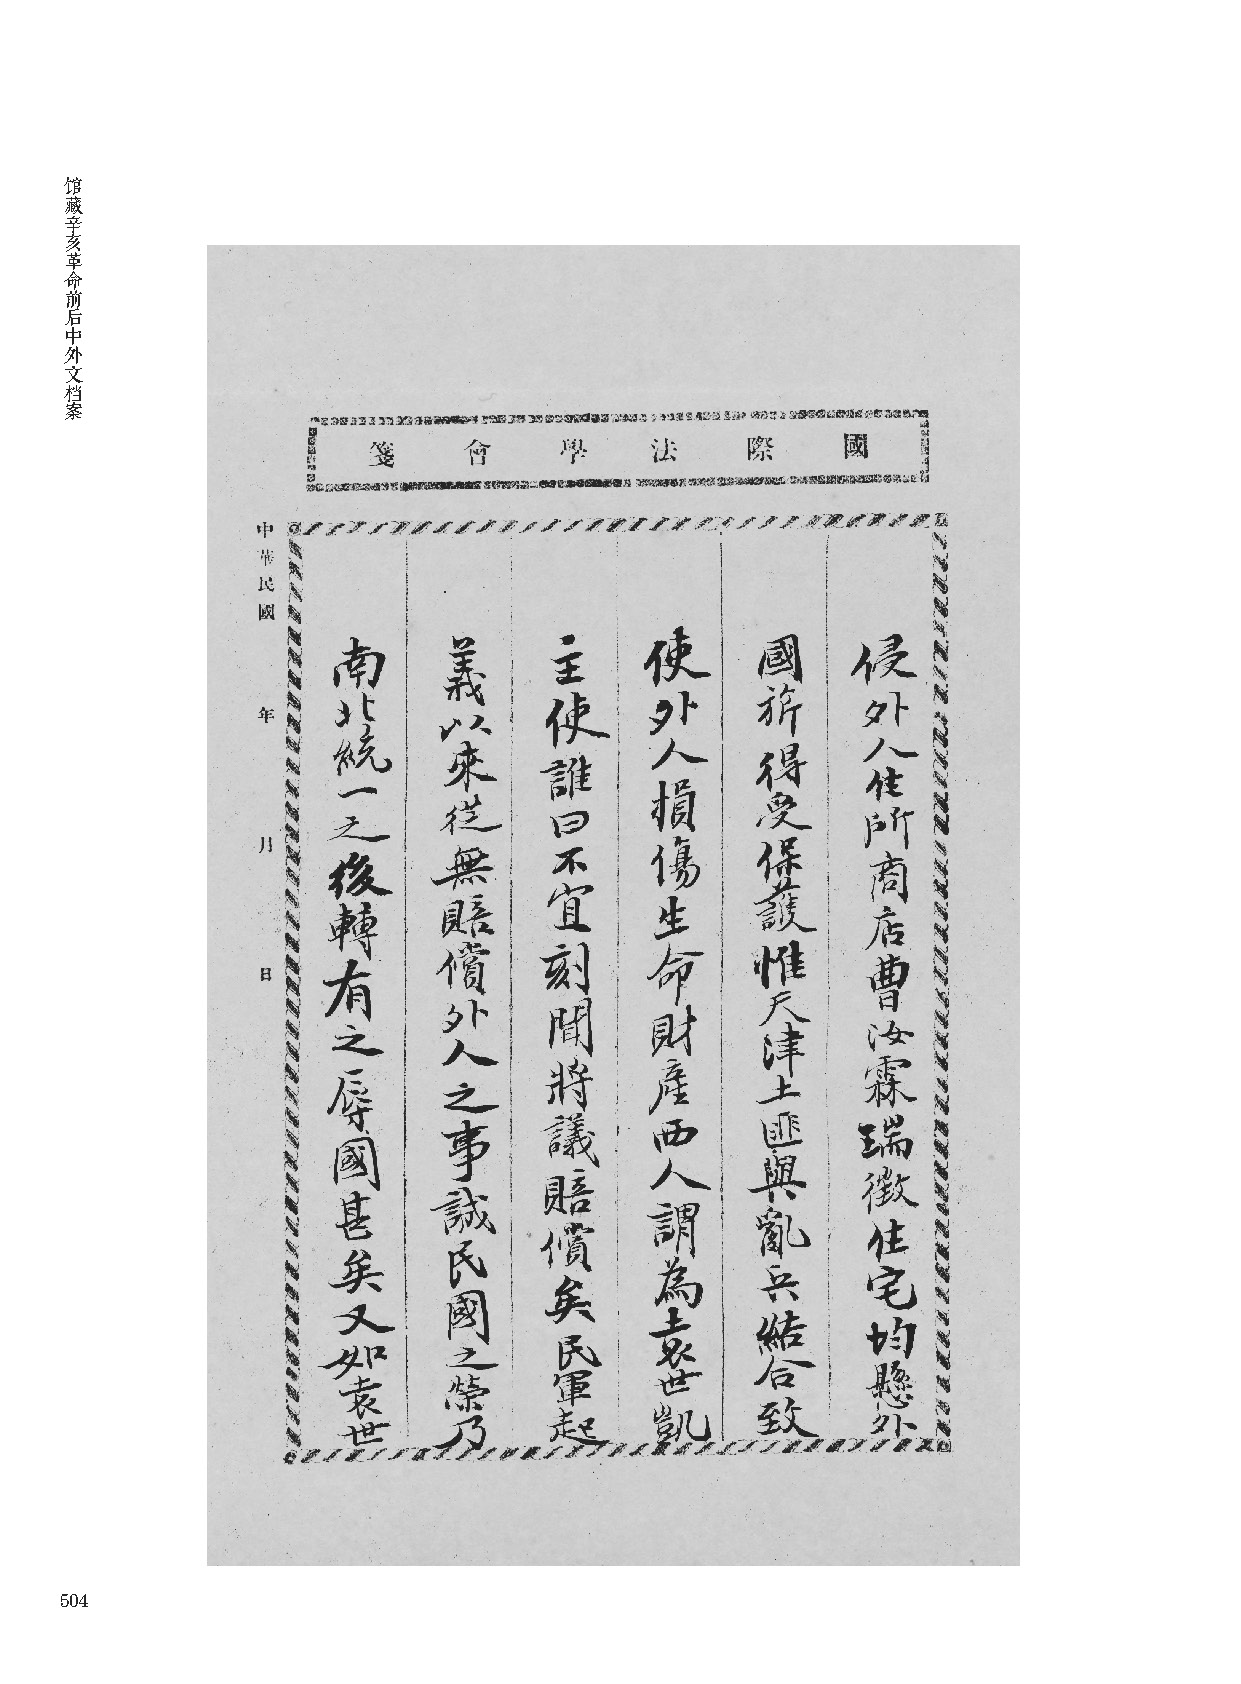 馆藏辛亥革命前后中外文档案
國際法學會箋
侵外人住所商店曹汝霖瑞徵住宅均懸外
國旂得受保護惟天津土匪與亂兵結合致
使外人損傷生命財產西人謂為袁世凱
主使誰曰不宜刻聞將議賠償矣民軍起
義以來從無賠償外人之事誠民國之榮乃
南北統一之後轉有之辱國甚矣又如袁世
中華民國 年 月 日
504